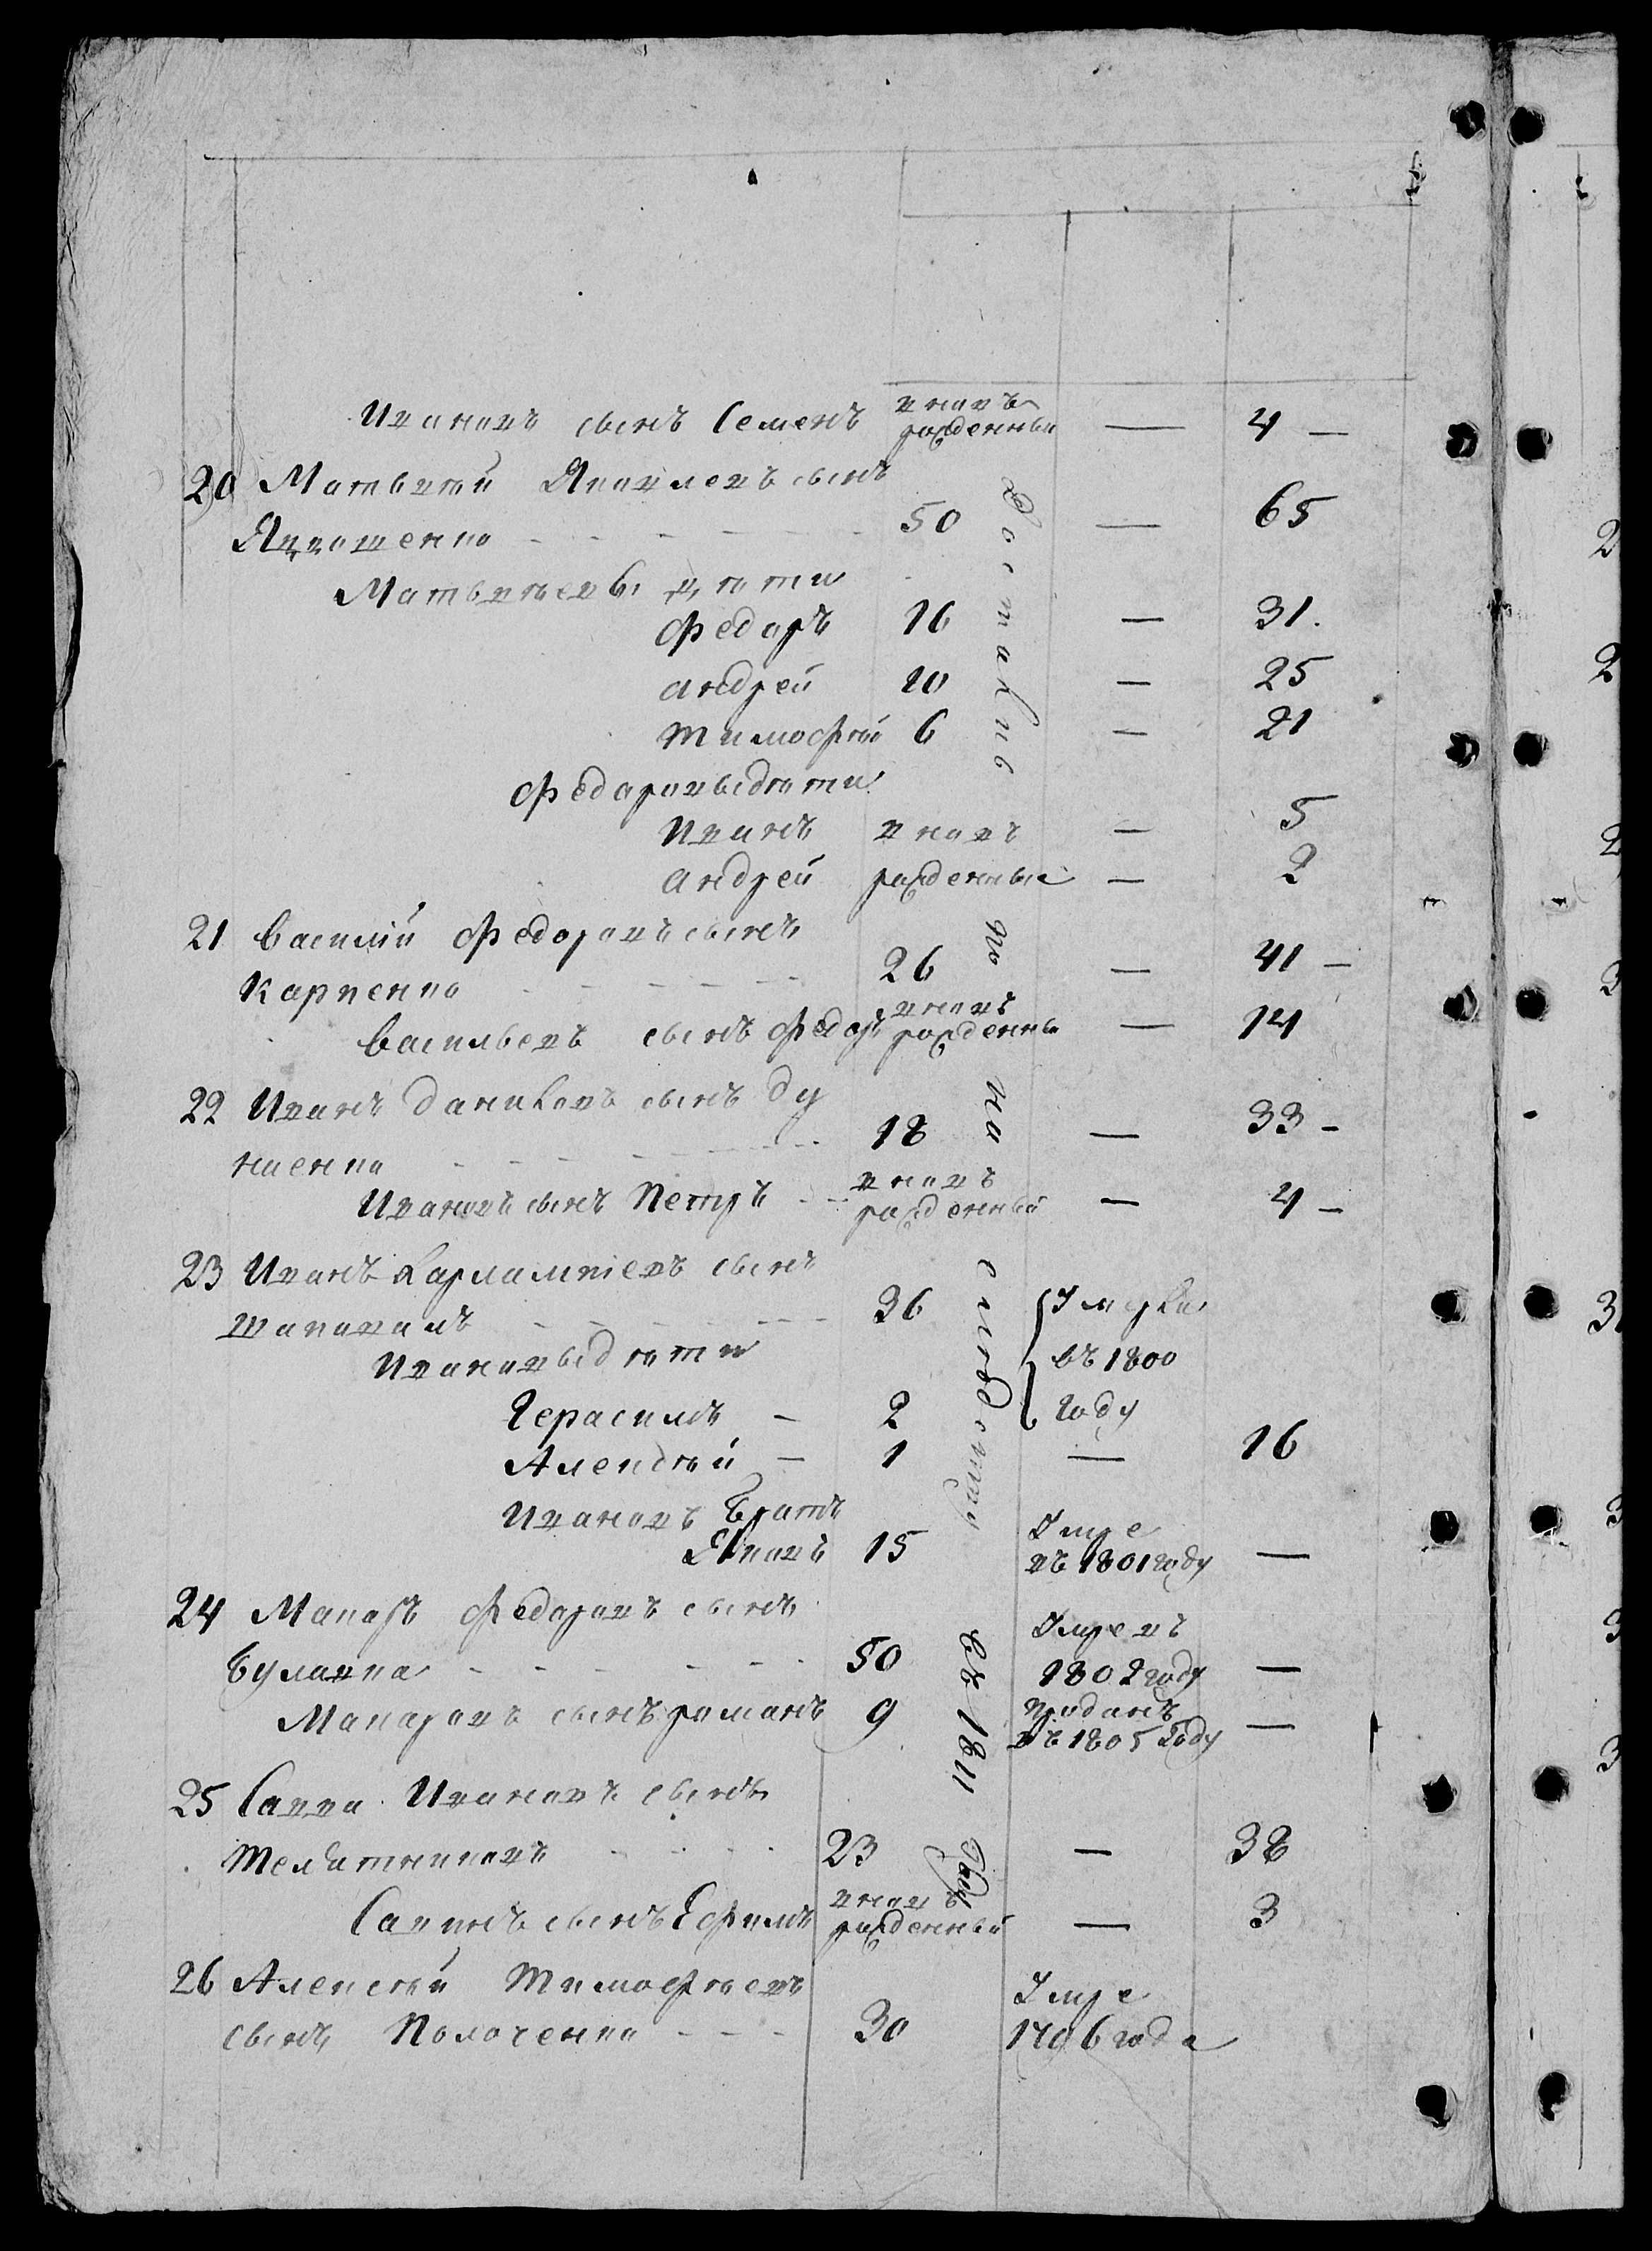 Ивановъ сынъ Семенъ вновь рожденный — 4 —
20 Матвѣй Яковлевъ сынъ
Яцошенко 50 — 65
Матвѣевы дѣти
Федоръ 16 — 31.
андрей 10 — 25
тимофѣй 6 — 21
Федоровы дѣти
иванъ вновь — 5
андрей рожденные — 2
21 Василій Федоровъ сынъ
Карпенко 26 — 41 —
Васильевъ сынъ Федоръ вновь рожденный — 14
22 Иванъ даниловъ сынъ ду
ниенко 18 — 33 —
Ивановъ сынъ Петръ вновь рожденный — 4 —
23 Иванъ Харлампіевъ сынъ
шаповалъ 36 Умерли
Ивановы дѣти въ 1800
Герасимъ — 2 году
Алексѣй — 1 — 16
Ивановъ братъ
Яковъ 15 Умре въ 1801 году —
24 Макаръ Федоровъ сынъ
булавка 50 Умре въ 1802 году —
Макаровъ сынъ романъ 9 проданъ въ 1805 году —
25 Савва Ивановъ сынъ
телятниковъ 23 — 38
Саввинъ сынъ Ефимъ вновь рожденный — 3
26 Алексѣй Тимофѣевъ Умре
сынъ Полоченко 30 1796 года
Досталис
по
на
слѣдству
въ 1811
году